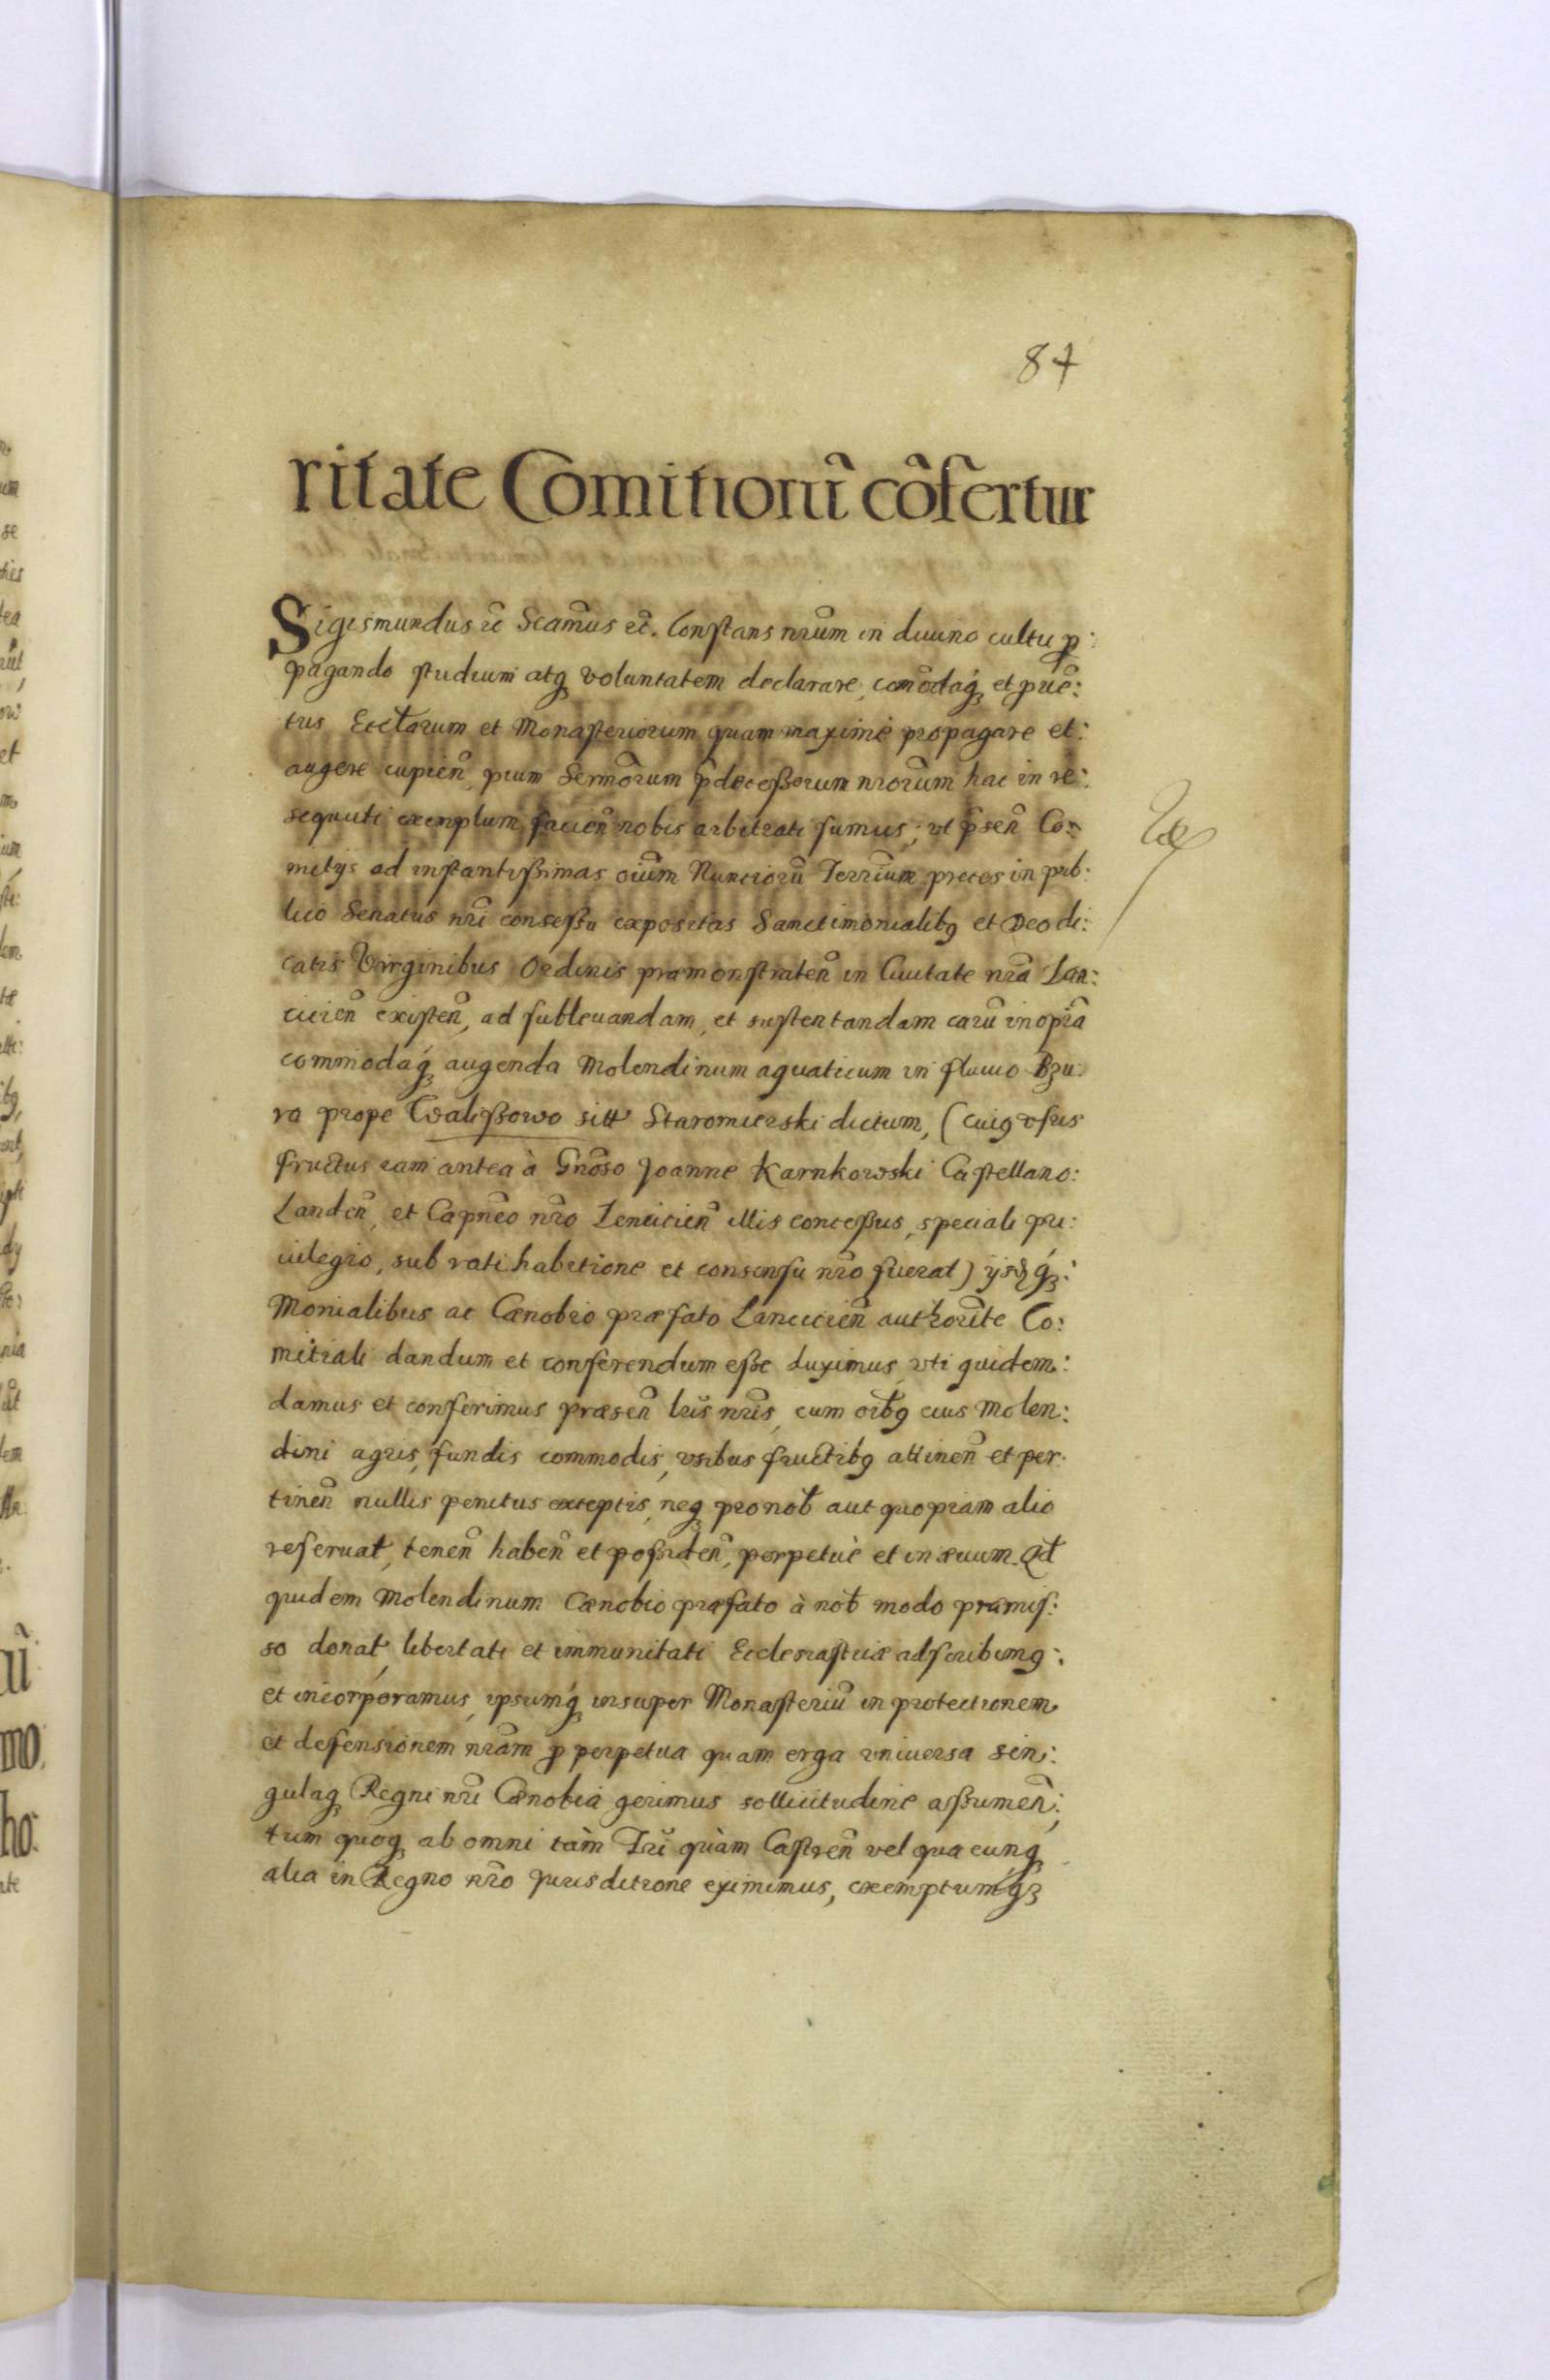 87
ritate Comitiorũ cõfertur
Sigismundus ꝛc̃ Scam̃us ꝛc̃. Constans nr̃um in diuino cultu ꝓ:
pagando studium atqꝫ voluntatem declarare, com̃odaqꝫ et ꝓuẽ:
tus Eccl̃arum et Monasteriorum quam maximè propagare et:
augere cupien̄, pium Serm̃orum p̃decessorum nr̃orum hac in re:
sequuti exemplum, facien̄ nobis arbitrati sumus, vt p̃sen̄ Co:
mitijs ad instantissimas oĩum Nunciorũ Terr̃ium preces in pub:
lico Senatus nr̃i consessu expositas Sanctimonialibꝰ et Deo di:
catis Virginibus Ordinis præmonstraten̄ in Ciuitate nr̃a Lan:
cicien̄ existen̄, ad subleuandam, et sustentandam earũ inopiã
commodaqꝫ augenda Molendinum aquaticum in fluuio Bzu:
ra prope Walissowo sitt Staromierski dictum, (cuiꝰ vsus
fructus iam antea à Gnõso Joanne Karnkowski Castellano:
Landen̄, et Capneo nr̃o Lencicien̄ illis concessus, speciali pri:
uilegio, sub rati habitione et consensu nr̃o fuerat) ijsdqꝫ:
Monialibus ac Cœnobio præfato Lancicien̄ authorit̃e Co:
mitiali dandum et conferendum esse duximus, vti quidem:
damus et conferimus præsen̄ lr̃is nr̃is, cum oĩbꝰ eius Molen:
dini agris, fundis commodis, vsibus fructibꝰ attinen̄ et per:
tinen̄ nullis penitus exceptis, neqꝫ pro nob̃ aut quopiam alio
reseruat̃, tenen̄ haben̄ et possiden̄, perpetuè et in æuum. Qd̃
quidem Molendinum Cœnobio præfato à nob̃ modo præmis:
so donat̃, libertati et immunitati Ecclesiasticæ adscribimꝰ:
et incorporamus, ipsumqꝫ insuper Monasteriũ in protectionem
et defensionem nr̃am ꝓ perpetua quam erga vniuersa sin:
gulaqꝫ Regni nr̃i Cœnobia gerimus sollicitudine assumen̄:
tum quoqꝫ ab omni tàm Tr̃i quàm Castren̄ vel quacunqꝫ
alia in Regno nr̃o Jurisditione eximimus, exemptumqꝫ